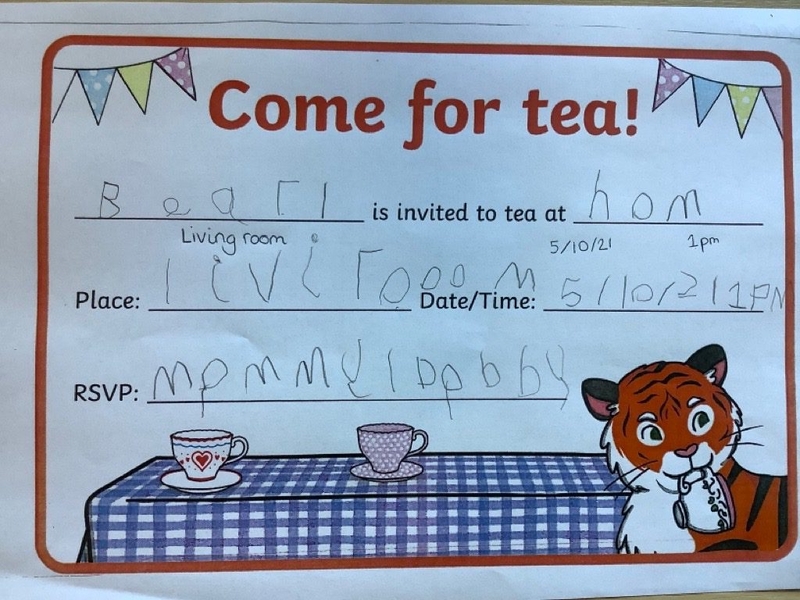 Come for tea!
Bearl is invited to tea at hom
Living room 5/10/21 1pm
Place: livirooom Date/Time: 5/10/21 1PM
RSVP: